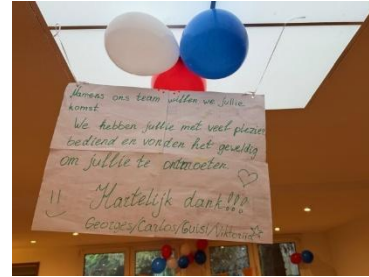 Namens ons team willen we jullie
komst.
We hebben jullie met veel plezier
bediend en vonden het geweldig
om jullie te ontmoeten
Hartelijk dank!!!
Georges/Carlos/Guisi/Viktoriia